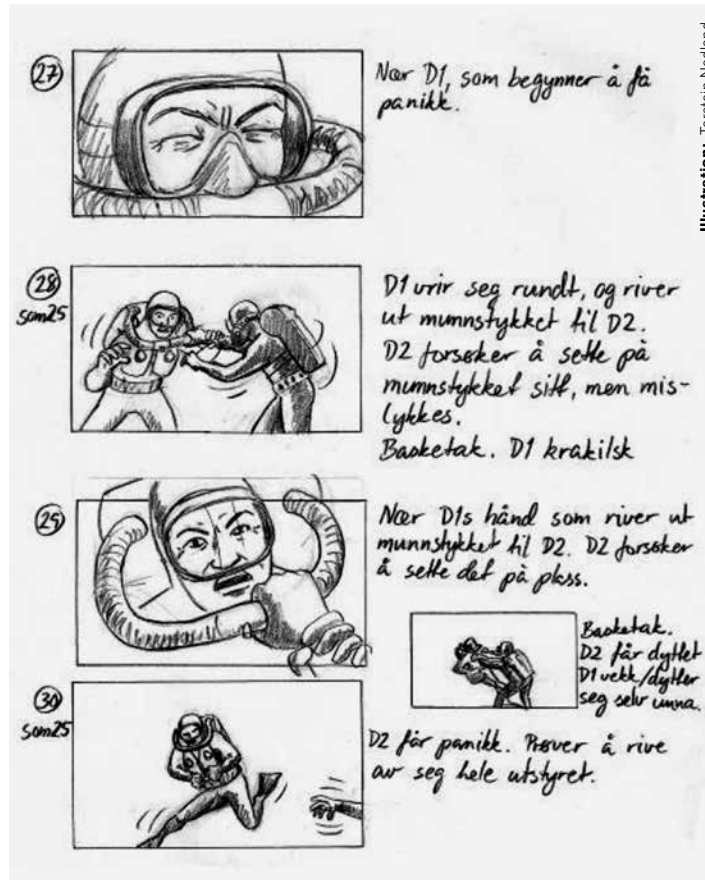 27
Nær D1, som begynner å få
panikk.
28
som 25
D1 vrir seg rundt, og river
ut munnstykket til D2.
D2 forsøker å sette på
munnstykket sitt, men mis-
lykkes.
Basketak. D1 krakilsk
29
Nær D1s hånd som river ut
munnstykket til D2. D2 forsøker
å sette det på plass.
Basketak.
D2 får dyttet
D1 vekk/dytter
seg selv unna.
30
som 25
D2 får panikk. Prøver å rive
av seg hele utstyret.
Illustration: Torstein Nedland